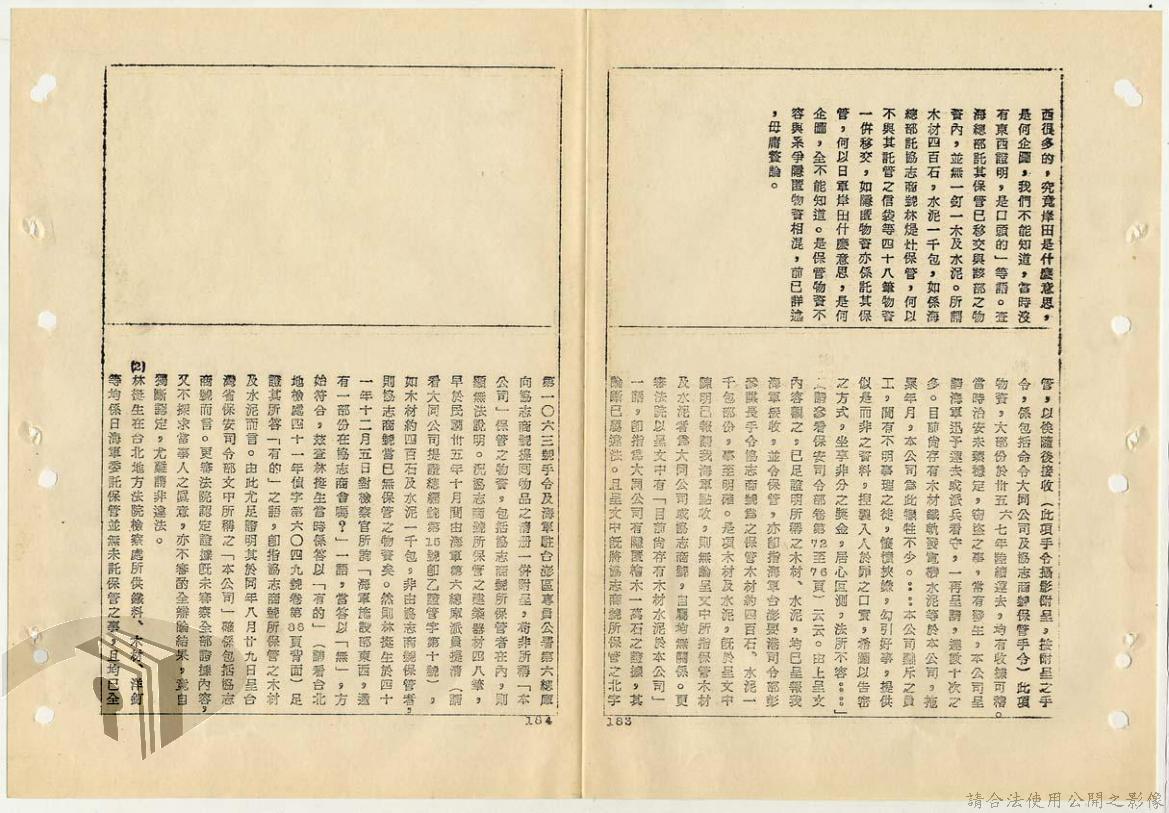 西很多的，究竟岸田是什麼意思，
是何企圖，我們不能知道，當時沒
有東西證明，是口頭的」等語。查
海總部託其保管已移交與該部之物
資內，並無一釘一木及水泥。所謂
木材四百石，水泥一千包，如係海
總部託協志商號林煶灶保管，何以
不與其託管之信袋等四十八筆物資
一併移交，如隱匿物資亦係託其保
管，何以日軍岸田什麼意思，是何
企圖，全不能知道。是保管物資不
容與系爭隱匿物資相混，前已詳述
，毋庸贅論。
管，以後隨後接收（此項手令攝影附呈，按附呈之手
令，係包括命令大同公司及協志商號保管手令）此項
物資，大部份於卅五六七年陸續運去，均有收據可稽。
當時治安未臻穩定，竊盜之事，常有發生，本公司呈
請海軍迅予運去或派兵看守，一再呈請，達數十次之
多。目前尚存有木材鐵軌發電機水泥等於本公司，拖
累年月，本公司為此犧牲不少。……本公司斥之員
工，間有不明事理之徒，懷恨挾嫌，勾引好事，提供
似是而非之資料，捏製入人於罪之口實，藉圖以告密
之方式，坐享非分之獎金，居心叵測，法所不容……」
（請參看保安司令部卷第72至76頁）云云。由上呈文
內容觀之，已足證明所稱之木材、水泥，均已呈報我
海軍接收，並令保管，亦即指海軍台澎要港司令部彭
參謀長手令協志商號之保管木材約四百石、水泥一
千包部份，事至明確。是項木材及水泥，既於呈文中
陳明已報請我海軍點收，則無論呈文中所指保管木材
及水泥者為大同公司或協志商號，自屬均無關係。更
審法院以呈文中有「目前尚存有木材水泥於本公司」
一語，即指為大同公司有隱匿檜木一萬石之證據，其
論斷已屬違法。且呈文中既將協志商號所保管之北字
183
第一〇六三號手令及海軍駐台澎區專員公署第六總庫
向協志商號提回物品之清冊一併附呈，苟非所稱「本
公司」保管之物資，包括協志商號所保管者在內，則
顯無法說明。況協志商號所保管之建築器材四八筆，
早於民國卅五年十月間由海軍第六總庫派員提清（請
看大同公司提證總編號第15號即乙證管字第十號），
如木材約四百石及水泥一千包，非由協志商號保管者，
則協志商號當已無保管之物資矣。然則林挺生於四十
一年十二月五日對檢察官所詢「海軍施設部東西，還
有一部份在協志商會嗎？」一語，當答以「無」，方
始符合，茲查林挺生當時係答以「有的」（請看台北
地檢處四十一年偵字第六〇四九號卷第36頁背面）足
證其所答「有的」之語，即指協志商號所保管之木材
及水泥而言。由此尤足證明其於同年八月廿九日呈台
灣省保安司令部文中所稱之「本公司」確係包括協志
商號而言。更審法院認定證據既未審察全部證據內容，
又不探求當事人之真意，亦不審酌全辯論結果，竟自
獨斷認定，尤難謂非違法。
(2)林挺生在台北地方法院檢察處所供鐵料、木材、洋釘
等均係日海軍委託保管並無未託保管之事，且均已全
184
請合法使用公開之影像